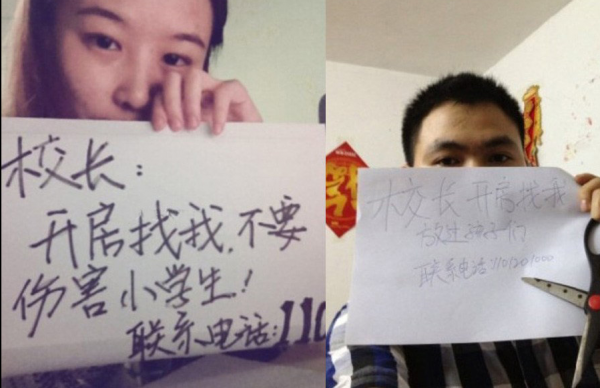 校长：
开房找我，不要
伤害小学生！
联系电话：110
校长 开房找我
放过孩子们